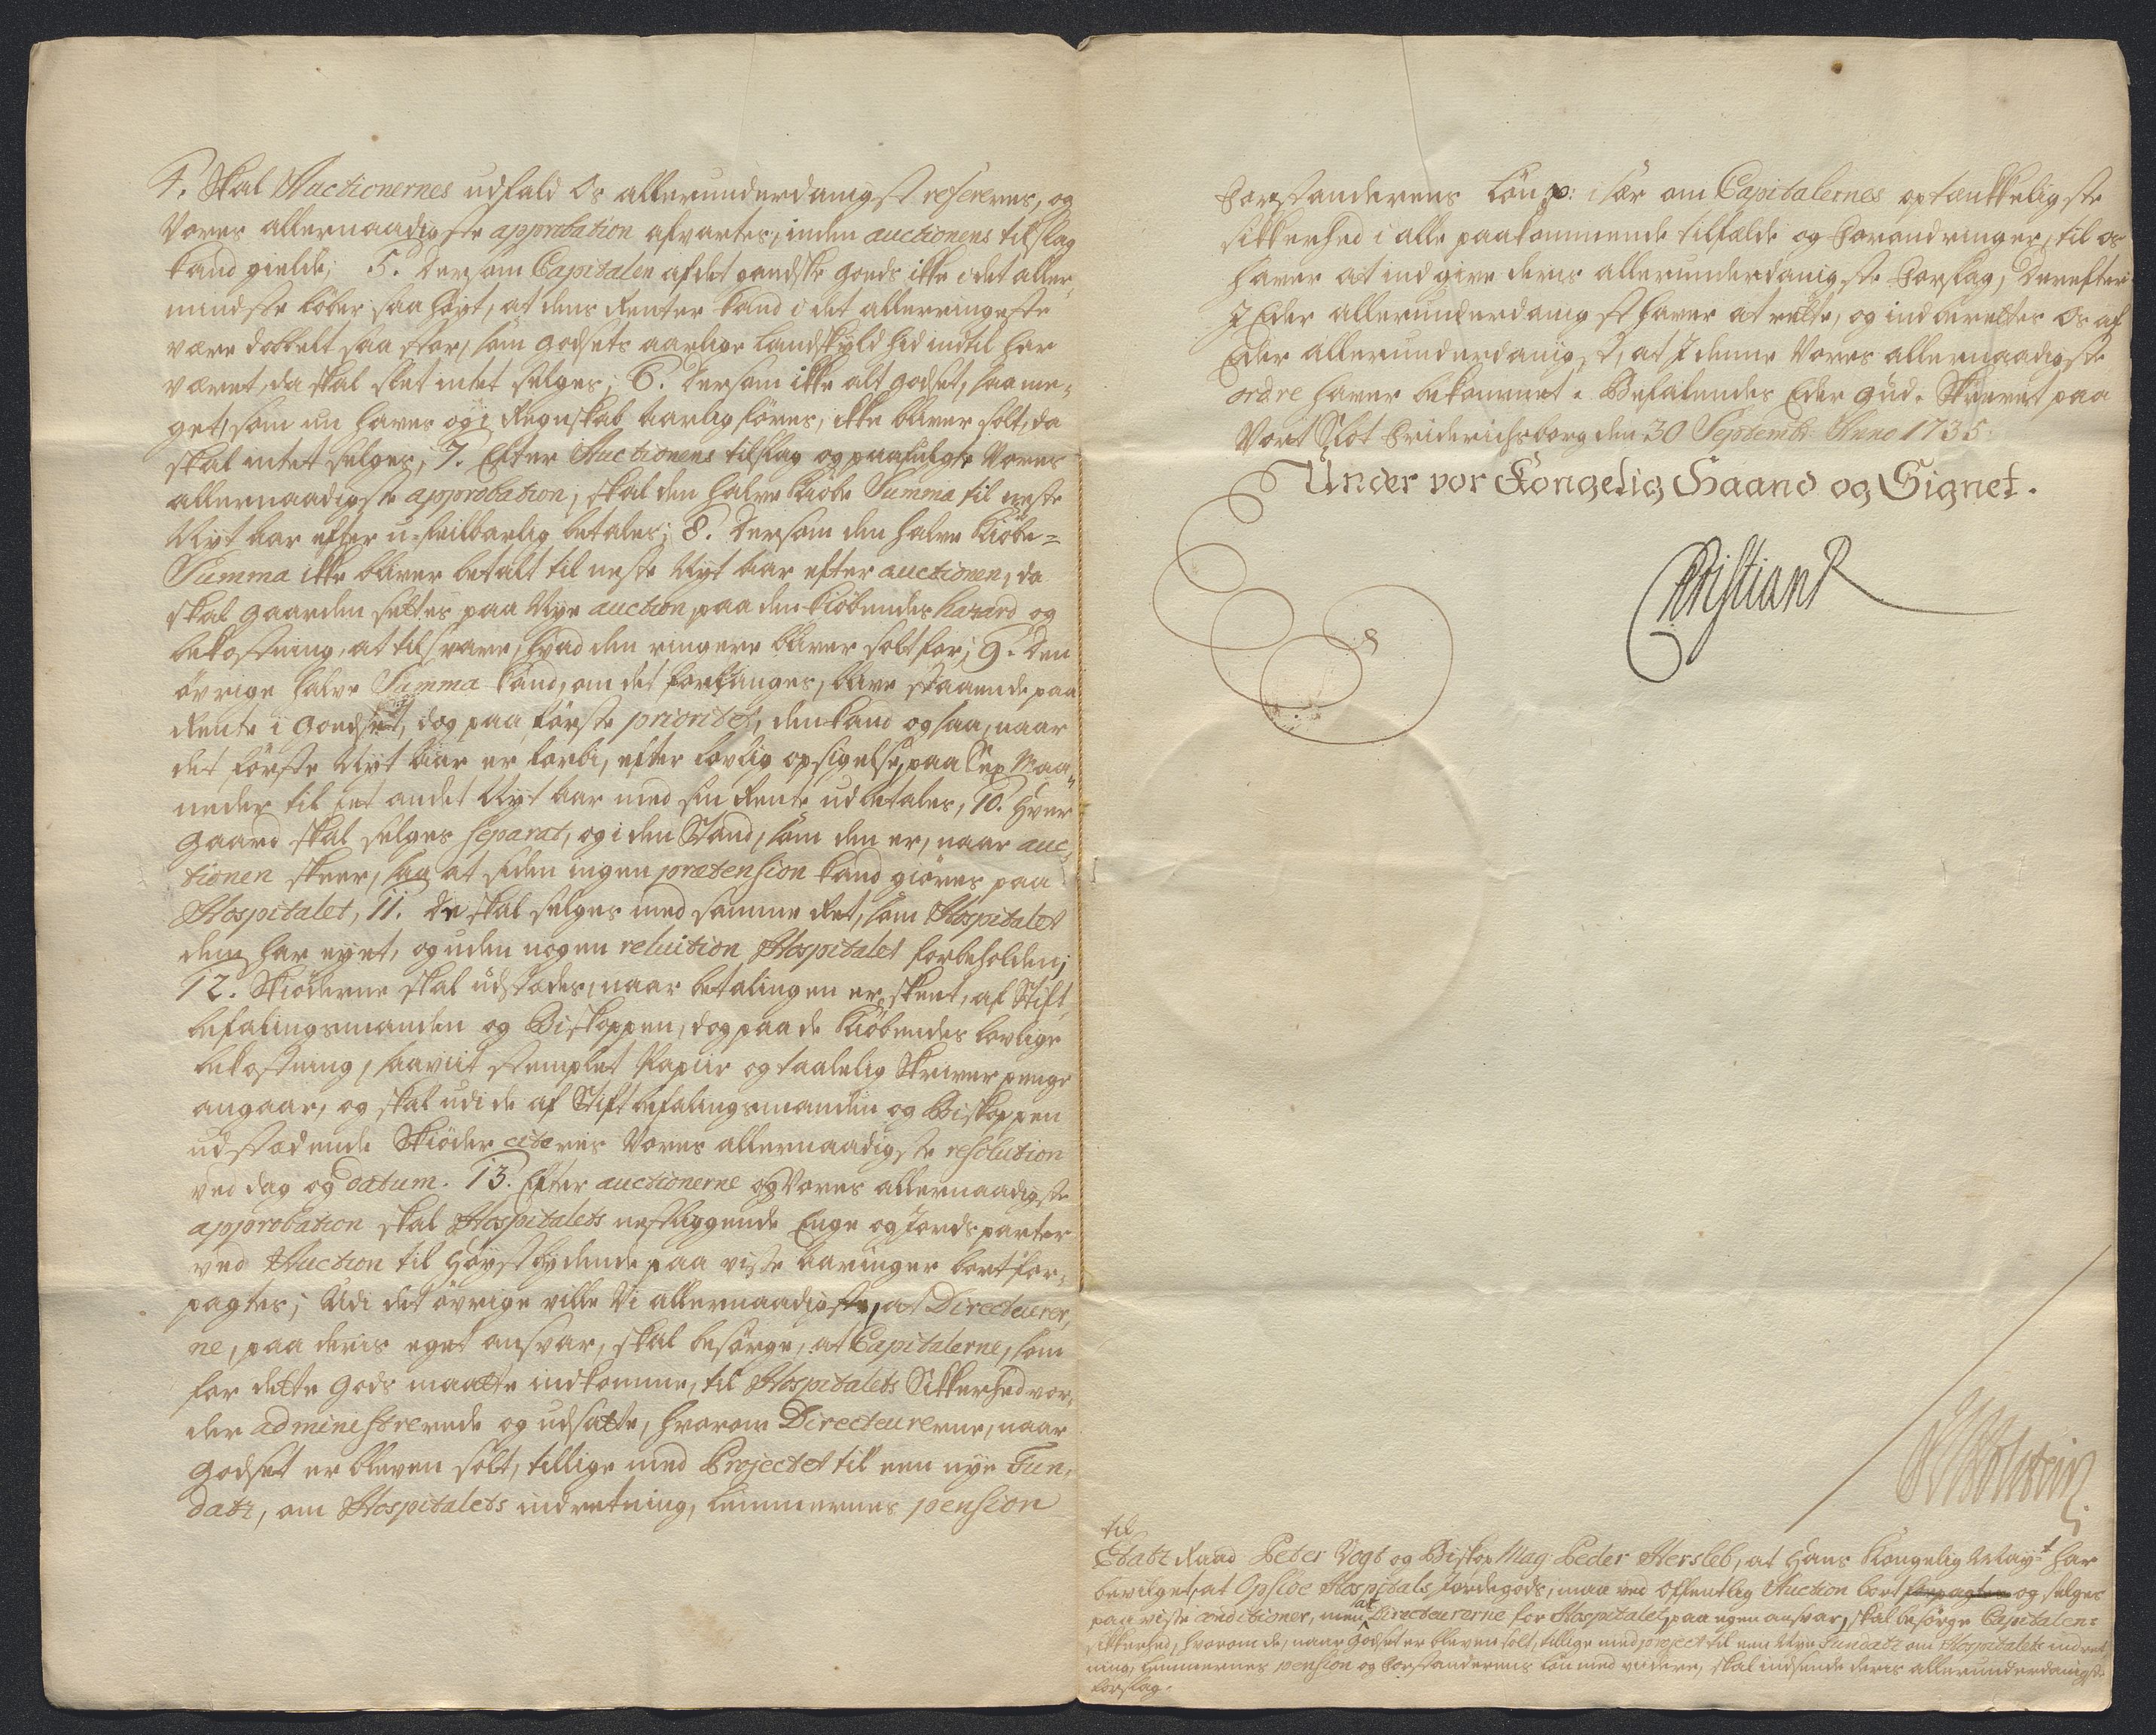 4. Skal Auctionernes udfald Os allerunderdanigst refereres, og
Vores allernaadigste approbation afvartes, inden auctionens tilslag
kand gielde; 5. Dersom Capitalen af det gandske Goeds ikke i det aller-
mindste løber saa høyt, at dens Renter kand i det allerringeste
være dobbelt saa stor, som Godsets aarlige Landskyld hid indtil har
været, da skal slet intet selges; 6. Dersom ikke alt Godset, saa me-
get, som nu haves og i Regnskab aarlig føres, ikke bliver solt, da
skal intet selges, 7. Efter Auctionens tilslag og paafulgte Vores
allernaadigste approbation, skal den halve Kiøbe Summa til neste
Nyt Aar efter u-feilbarlig betales; 8. Dersom den halve Kiøbe-
Summa ikke bliver betalt til neste Nyt Aar efter auctionen, da
skal Gaarden settes paa Nye auction paa den Kiøbendes hazard og
bekostning, at tilsvare, hvad den ringere bliver solt for; 9. Den
øvrige halve Summa kand, om det forlanges, blive staaende paa
Rente i Goedset, dog paa første prioritet, den kand og saa, naar
det første Nyt Aar er forbi, efter lovlig opsigelse, paa Sex Maa-
neder til et andet Nyt Aar med sin Rente udbetales, 10. Hver
Gaard skal selges separat, og i den Stand, som den er, naar auc-
tionen skeer, saa at siden ingen prætension kand giøres paa
Hospitalet, 11. De skal selges med samme Ret, som Hospitalet
dem har eyet, og uden nogen reluition Hospitalet forbeholden;
12. Skiøderne skal udstædes, naar betalingen er skeet, af Stift-
befalingsmanden og Biskoppen, dog paa de Kiøbendes lovlige
bekostning, saavit stemplet Papiir og taalelig Skriver penge
angaar, og skal udi de af Stiftbefalingsmanden og Biskoppen
udstædende Skiøder citeris Vores allernaadigste resolution
ved dag og datum. 13. Efter auctionerne og Vores allernaadigste
approbation skal Hospitalets nestliggende Enge og Jordsparter
ved Auction til Høystbydende paa visse Aaringer bortfor-
pagtes; Udi det øvrige ville Vi allernaadigste, at Directeurer-
ne, paa deris eget ansvar, skal besørge, at Capitalerne, som
for dette Gods maatte indkomme, til Hospitalets Sikkerhed vor-
der administrerede og udsatte, hvorom Directeurerne, naar
Godset er bleven solt, tillige med Projectet til een nye Fun-
datz, om Hospitalets indretning, Lemmernes pension
Forstanderens Løn p: især om Capitalernes optænkkeligste
sikkerhed i alle paakommende tilfælde og Forandringer, til os
haver at indgive deris allerunderdanigste Forslag, Derefter
I Eder allerunderdanigst haver at rette, og indberettes Os af
Eder allerunderdanigst, at I denne Vores allernaadigste
ordre haver bekommet. Befalendes Eder Gud. Skrevet paa
Vort Slot Friderichsborg den 30 Septembr: Anno 1735.
Under vor Kongelig Haand og Signet.
Christian R
JLHolstein
til
Etatz Raad Peter Vogt og Biskop Mag: Peder Hersleb, at Hans Kongelig Mayt har
bevilget, at Opsloe Hospitals Jordegods, maa ved Offentlig Auction bort forpagtes og selges
paa visse conditioner, men at Directeurerne for Hospitalet, paa egen ansvar, skal besørge Capitalens
sikkerhed, hvorom de, naar Godset er bleven solt, tillige med project til een Nye Fundatz om Hospitalets indret-
ning, Lemmernes pension og Forstanderens Løn med videre, skal indsende deris allerunderdanigste
Forslag.